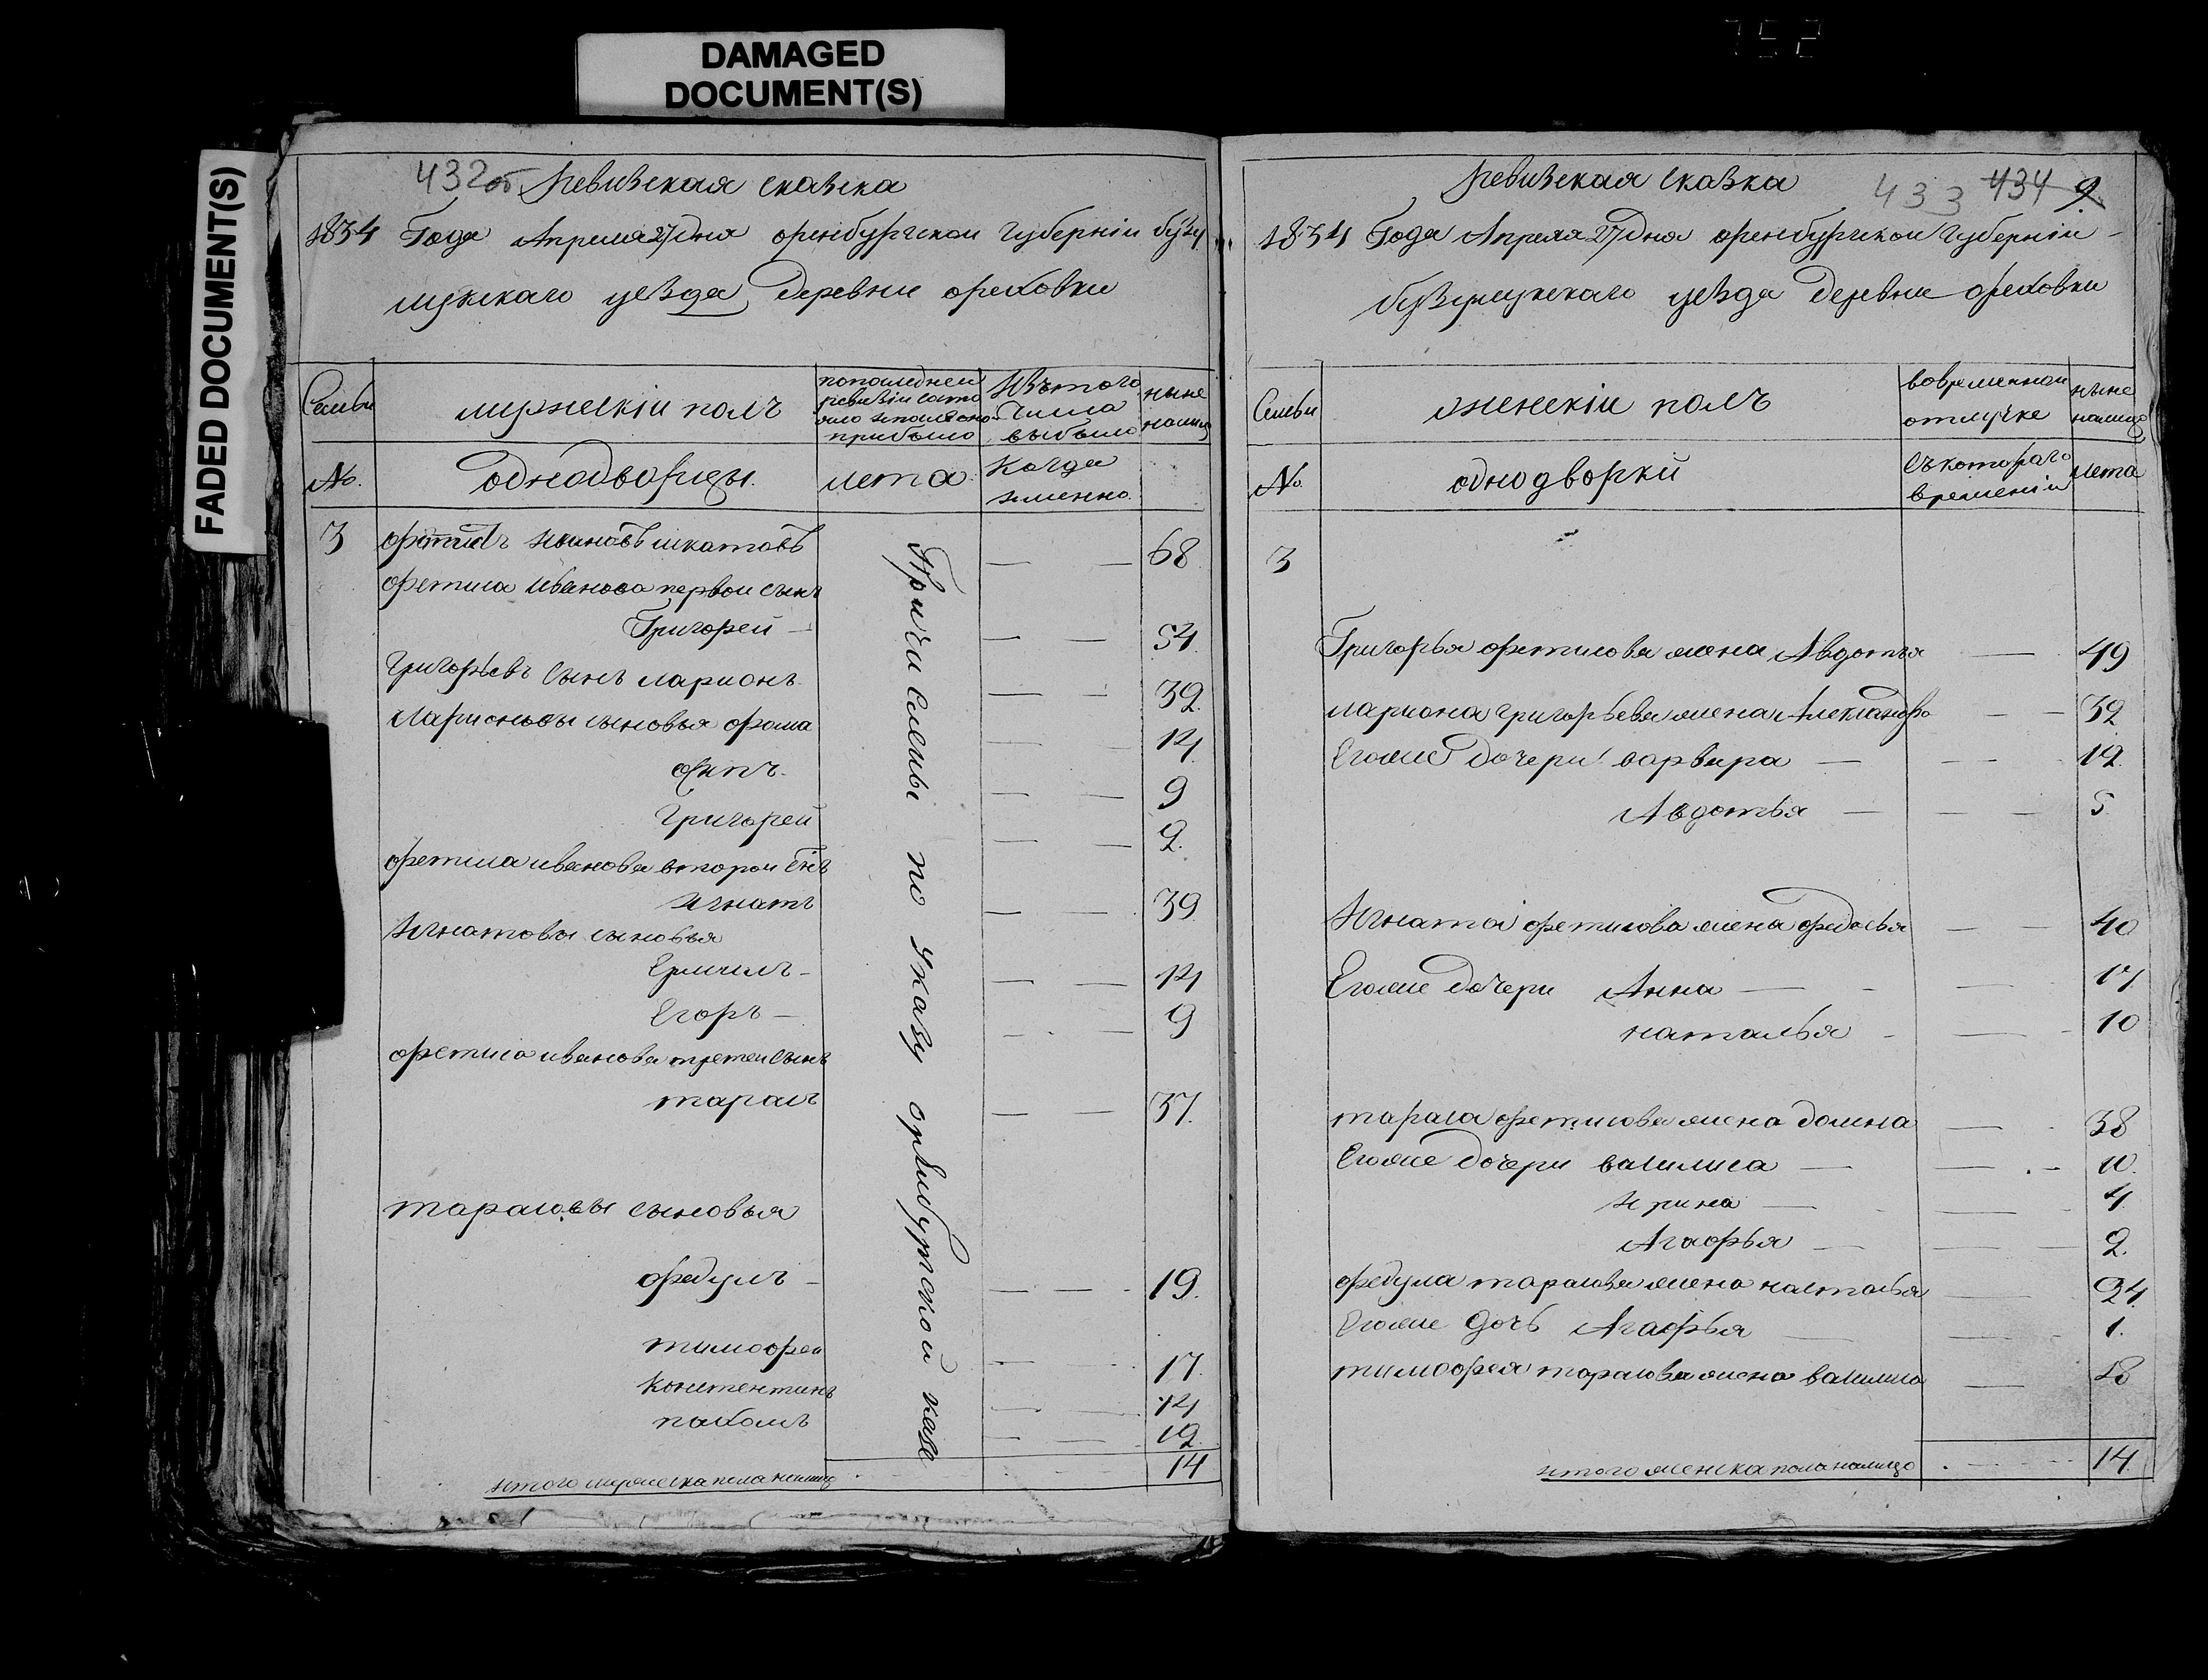 DAMAGED
DOCUMENT(S)
FADED DOCUMENT(S)
432об
ревизская сказка
1834 Года Апреля 27 дня оренбургской губернiи бузу
лукскаго уезда деревни ореховки
Семьи
мужескiи полъ
попоследнеи
ревизiи состо
яло и после оно
прибыло
Изътого
Числа
выбыло
ныне
налицо
№.
однодворцы.
лета
когда
именно.
3 Ивановъ Шкатовъ 68
фетиса Иванова первои сынъ
Григореи 54
григорьевъ сынъ ларионъ 39
Ларионовы сыновья фома 14
осипъ 9
григореи 2.
фетиса иванова второи снъ
игнатъ 39
Игнатовы сыновья
14
Егоръ 9
фетиса иванова третеи сынъ
тарасъ 37.
тарасовы сыновья
федулъ 19.
тимофеи 17.
констентинъ 14
пахомъ 12.
итого мужеска пола налицо 14
Причислены по указу оренбургской казе
433 434 9
ревизская сказка
1834 Года Апреля 27 дня оренбургской губернiи
бузулукскаго уезда деревни ореховки
Семьи
женскiи полъ
вовременнои
отлучке
ныне
налицо
№
однодворки
съкотораго
времени
лета
3
Григорья фетисова жена Авдотья 49
лариона григорьева жена Александра 39
Егоже дочери варвара 12.
Авдотья 5
Игната фетисова жена федосья 40
Егоже дочери Анна 17
наталья 10
тараса фетисова жена домна 38
Егоже дочери василиса 10.
ирина 4.
Агафья 2.
федула тарасова жена настасья 24.
Егоже дочь Агафья 1.
тимофея тарасова жена василиса 18
итого женска пола налицо 14.